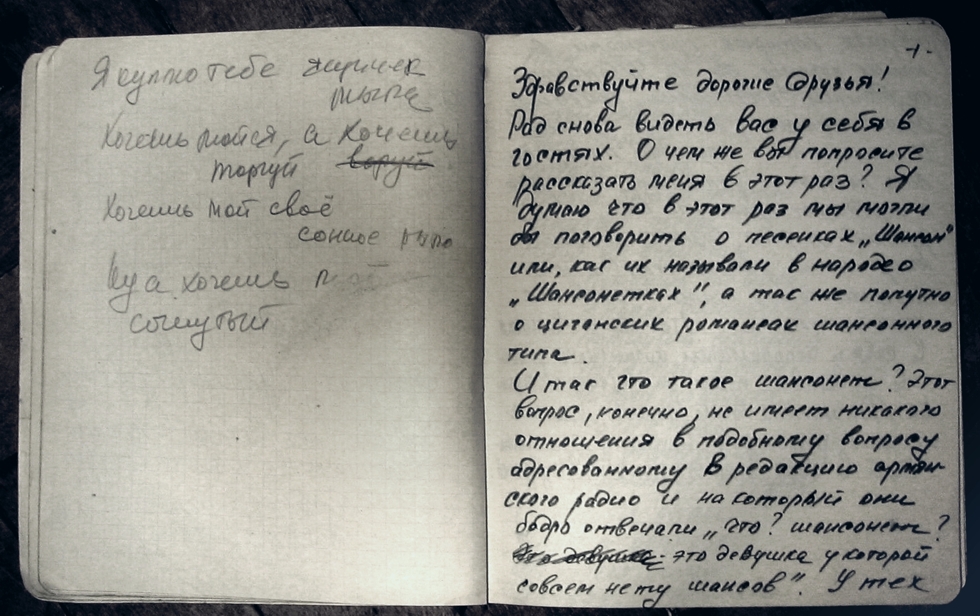 Я куплю тебе ящичек
мыла
Хочешь мойся, а хочешь
торгуй воруй
Хочешь мой своё
сонное рыло
Ну а хочешь
сомутый
-1-
Здравствуйте дорогие Друзья!
Рад снова видеть вас у себя в
гостях. О чем же вы попросите
рассказать меня в этот раз? Я
думаю что в этот раз мы могли
бы поговорить о песенках „Шансон"
или, как их называли в народе
„Шансонетках", а так же попутно
о циганских романсах шансонного
типа.
И так что такое шансонет? Этот
вопрос, конечно, не имеет никакого
отношения к подобному вопросу
адресованному в редакцию армян-
ского радио и на который они
бодро отвечали „что? шансонет?
Это девушка - это девушка у которой
совсем нету шансов". У тех